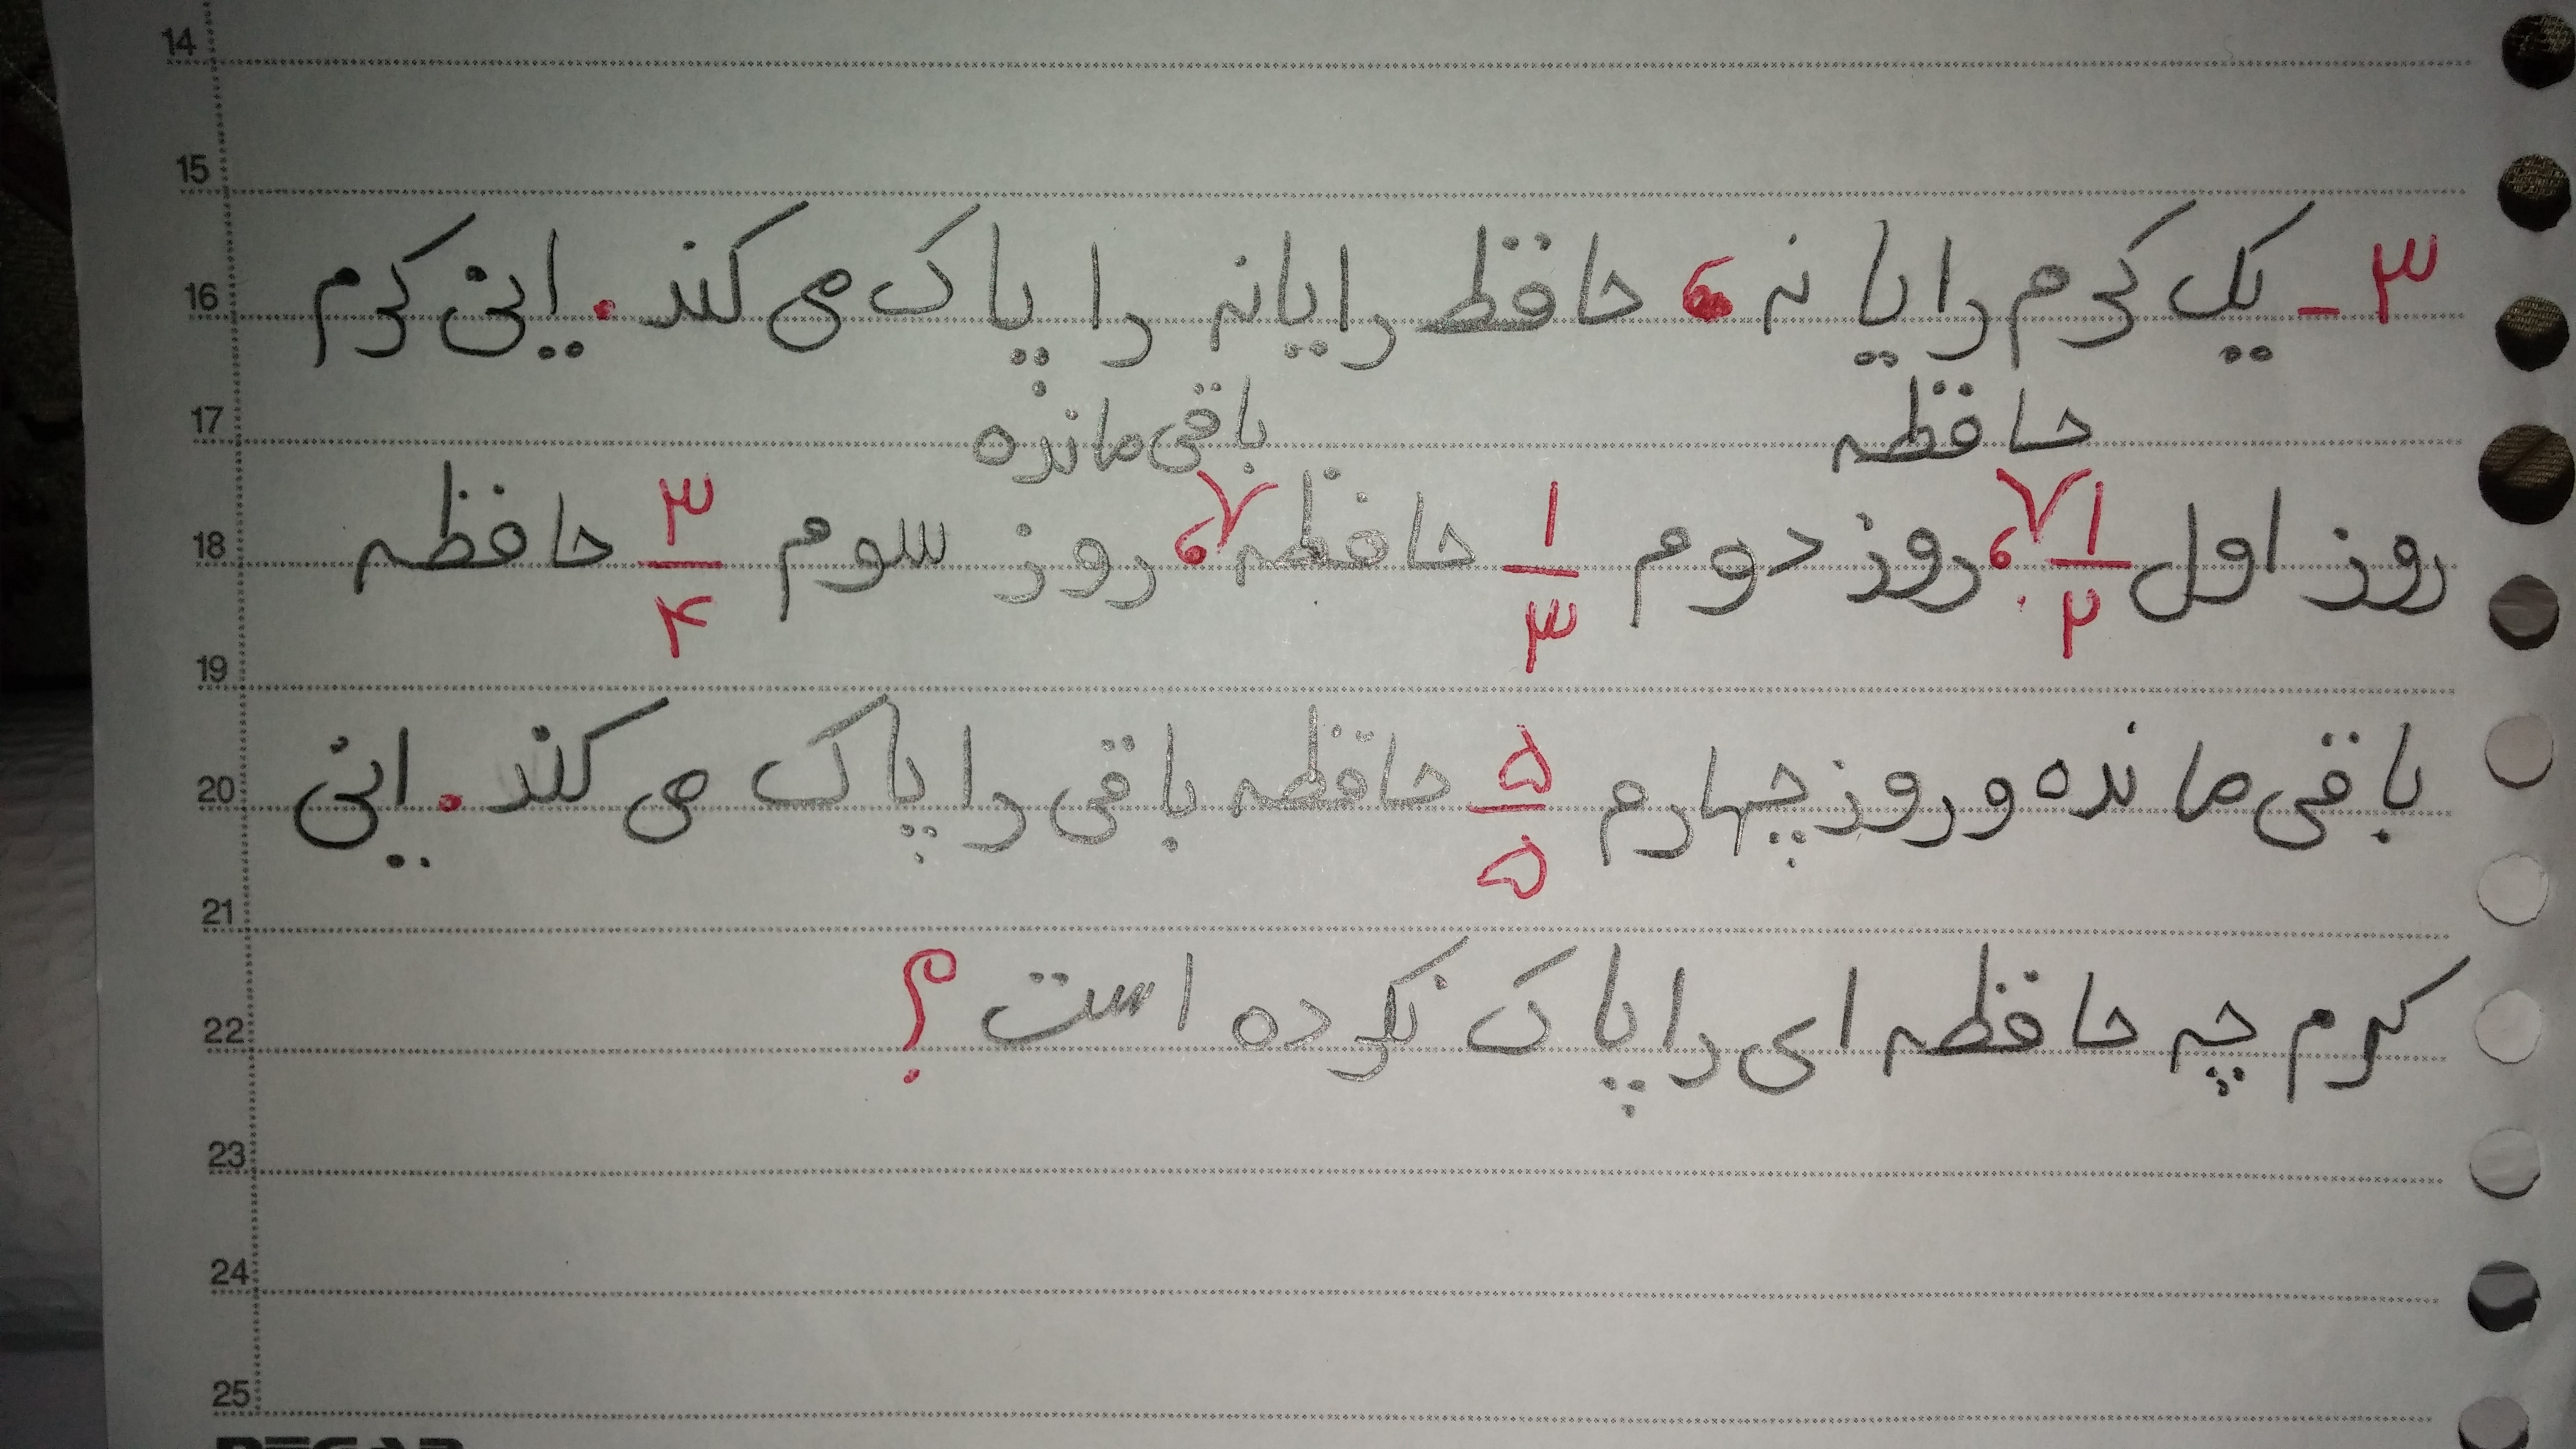 14
15
16
۳- یک کرم رایانه، حافظ رایانه را پاک می کند. این کرم
17
حافظه باقی مانده
18
روز اول ۱/۲، روز دوم ۱/۳ حافظه، روز سوم ۳/۴ حافظه
19
20
باقی مانده و روز چهارم ۵/۵ حافظه باقی را پاک می کند. این
21
22
کرم چه حافظه ای را پاک نکرده است؟
23
24
25